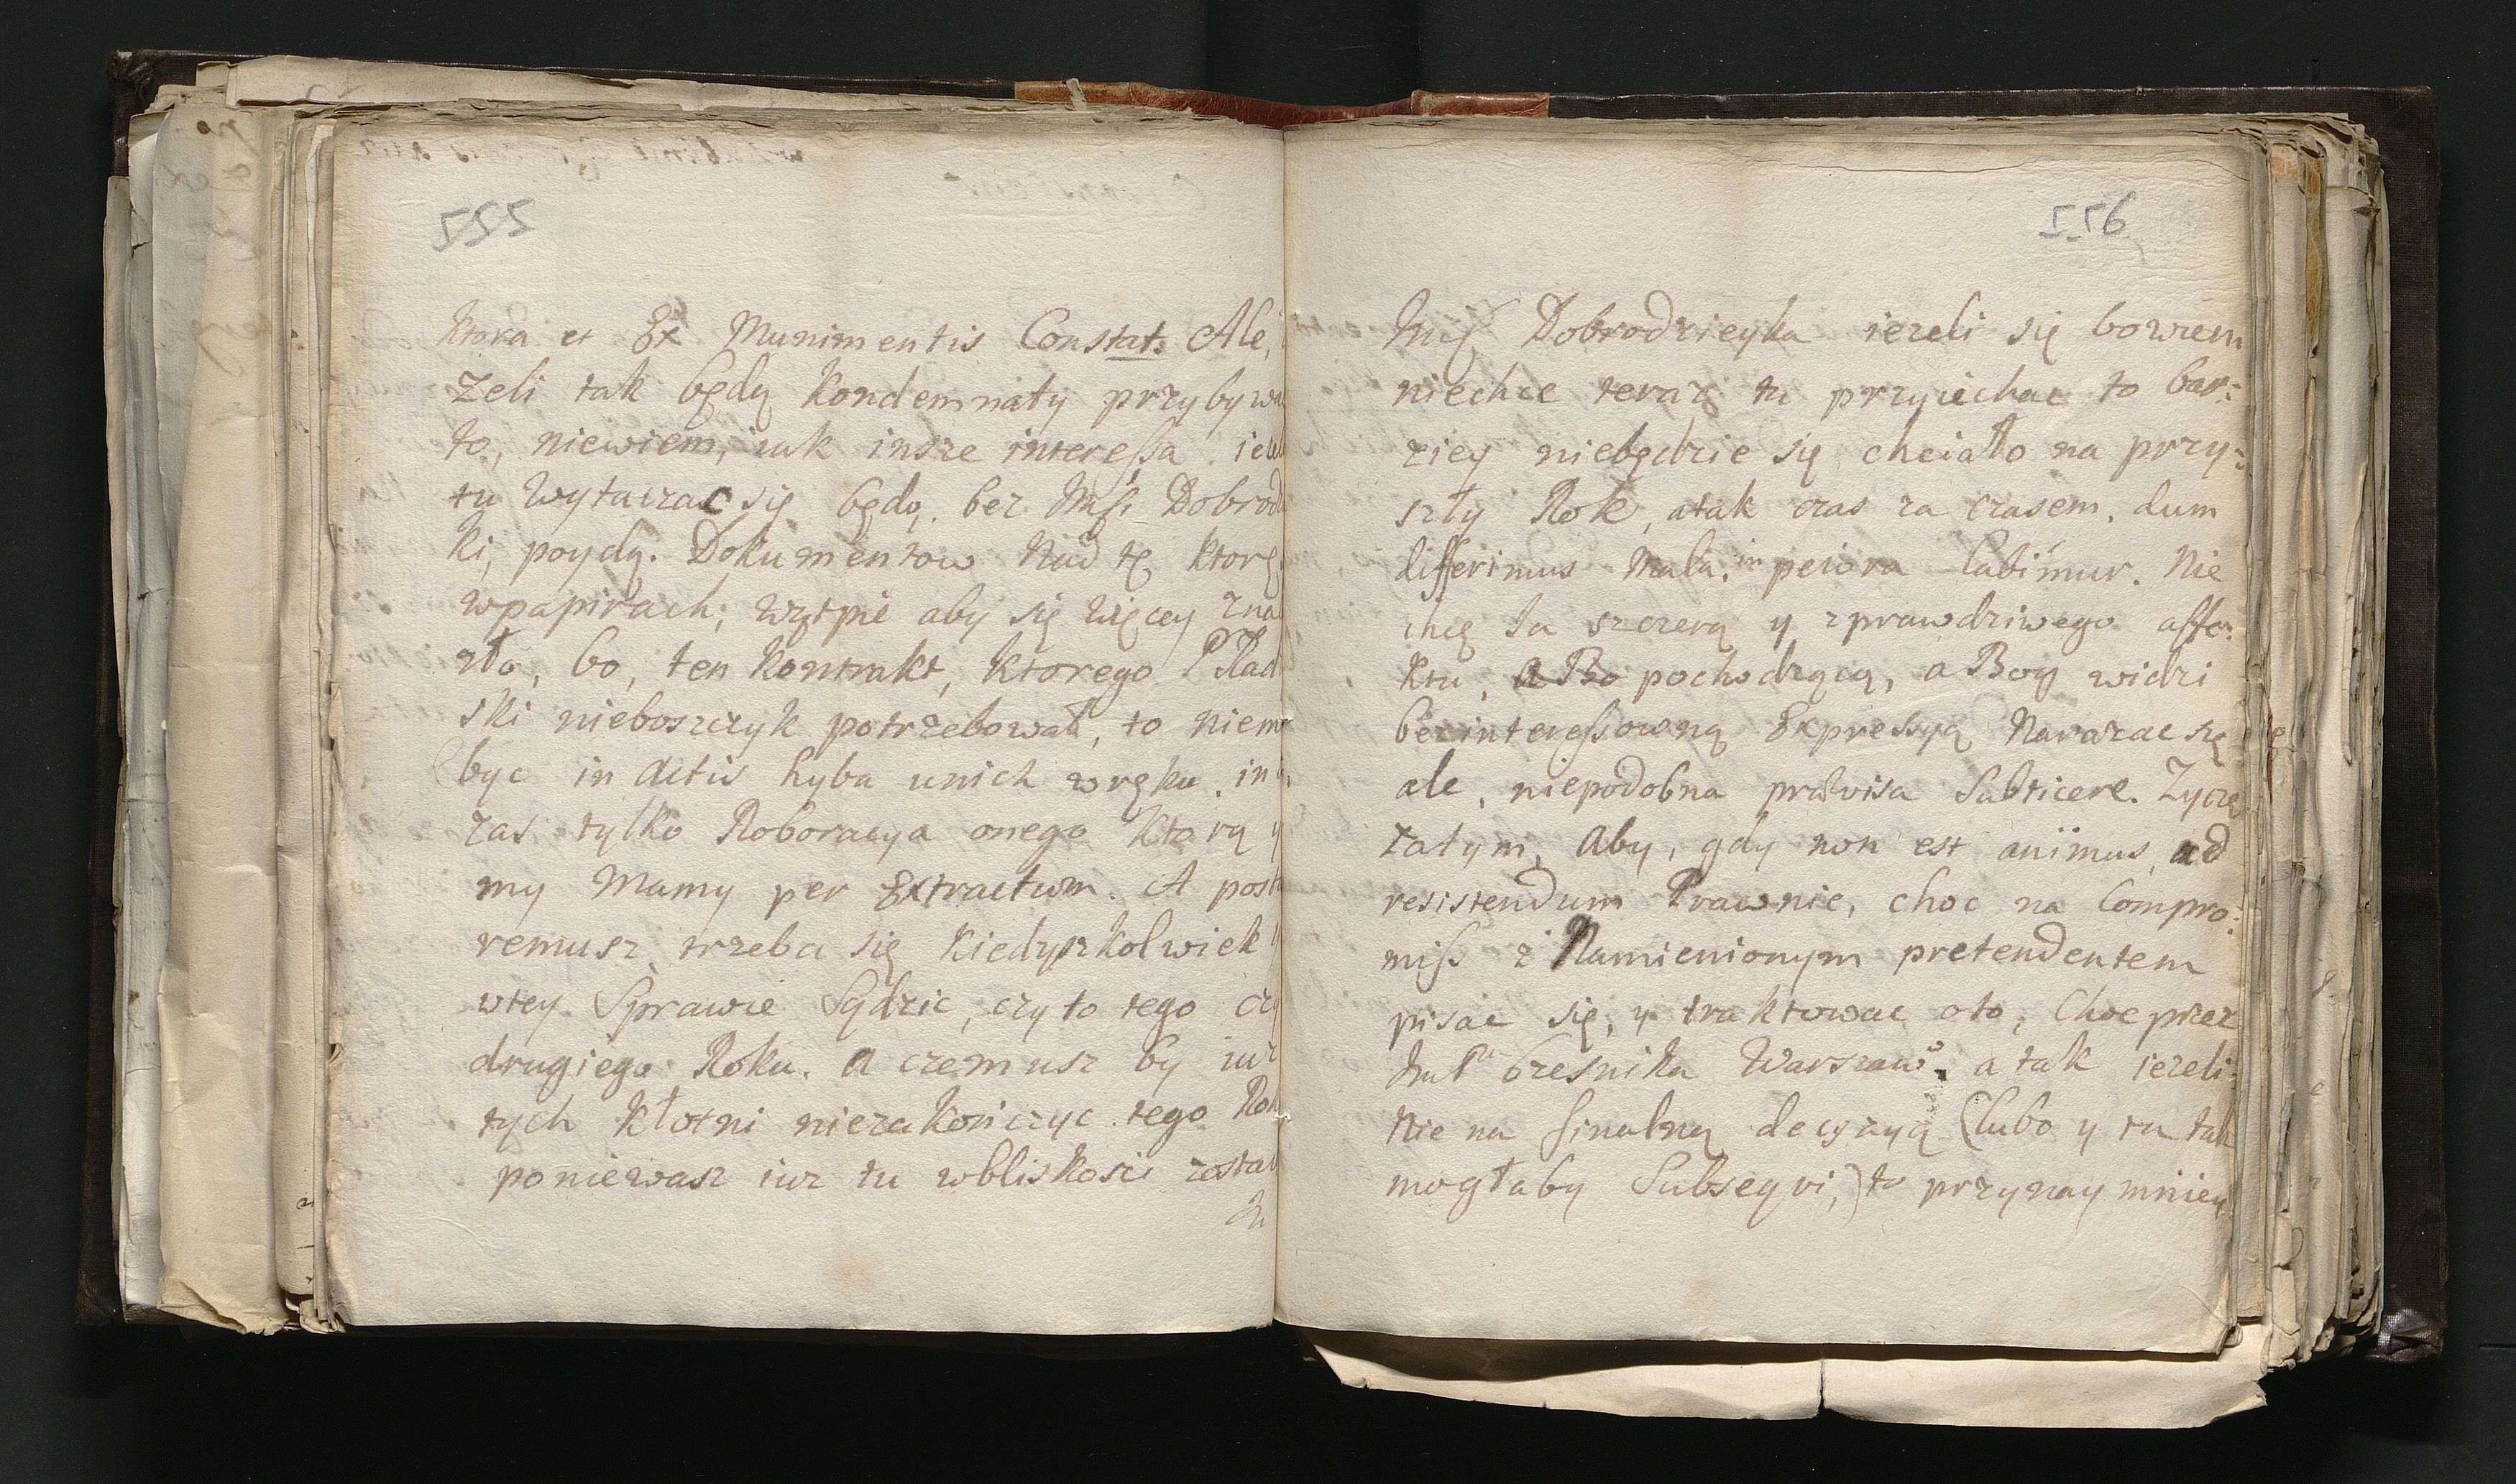 555
ktora et Ex Munimentis Constat. Ale,
żeli tak będą kondemnaty przybywa
to, niewiem, iak insze interessa
tu wytaczac się będą. bez Dobrod
ki, poydą. Dokumentow Nad tę ktorę
wpapirach, wątpie aby się więcey zna
zło, bo, ten kontrakt, ktorego P Rad
ski nieboszczyk potrzebował, to niem
byc in Actis hyba unich wręku. in
zas tylko Roboracya onego ktorą y
my Mamy per Extractum. A
remusz trzeba się kiedyszkolwiek
wtey Sprawie Sądzic, czy to tego czy
drugiego Roku. A czemusz by iuz
tych kłotni niezakończyc tego Rok
poniewasz iuz tu wbliskosci zosta
556
Dobrodzieyka iezeli się bowiem
niechce teraz tu przyiechac to bar:
ziey niebędzie się chciało na przy:
szły Rok, atak czas za czasem. dum
differimus Mala, in peiora labimur. Nie
chcę ta szczerą y zprawdziwego affe:
ktu, pochodzącą, a Bog widzi
bezinteressowną Expressyą Narazac się
ale, niepodobna prævisa Subticere. Zyczę
zatym, Aby, gdy non est animus, ad
resistendum Prawnie, choc na Compro:
miss z Namienionym pretendentem
pisac się, y traktowac oto, Choc przez
Czesnika Warszaw. a tak iezeli
Nie na finalną decyzyą (lubo y ta tak
mogłaby Subseqvi,) to przynaymniey